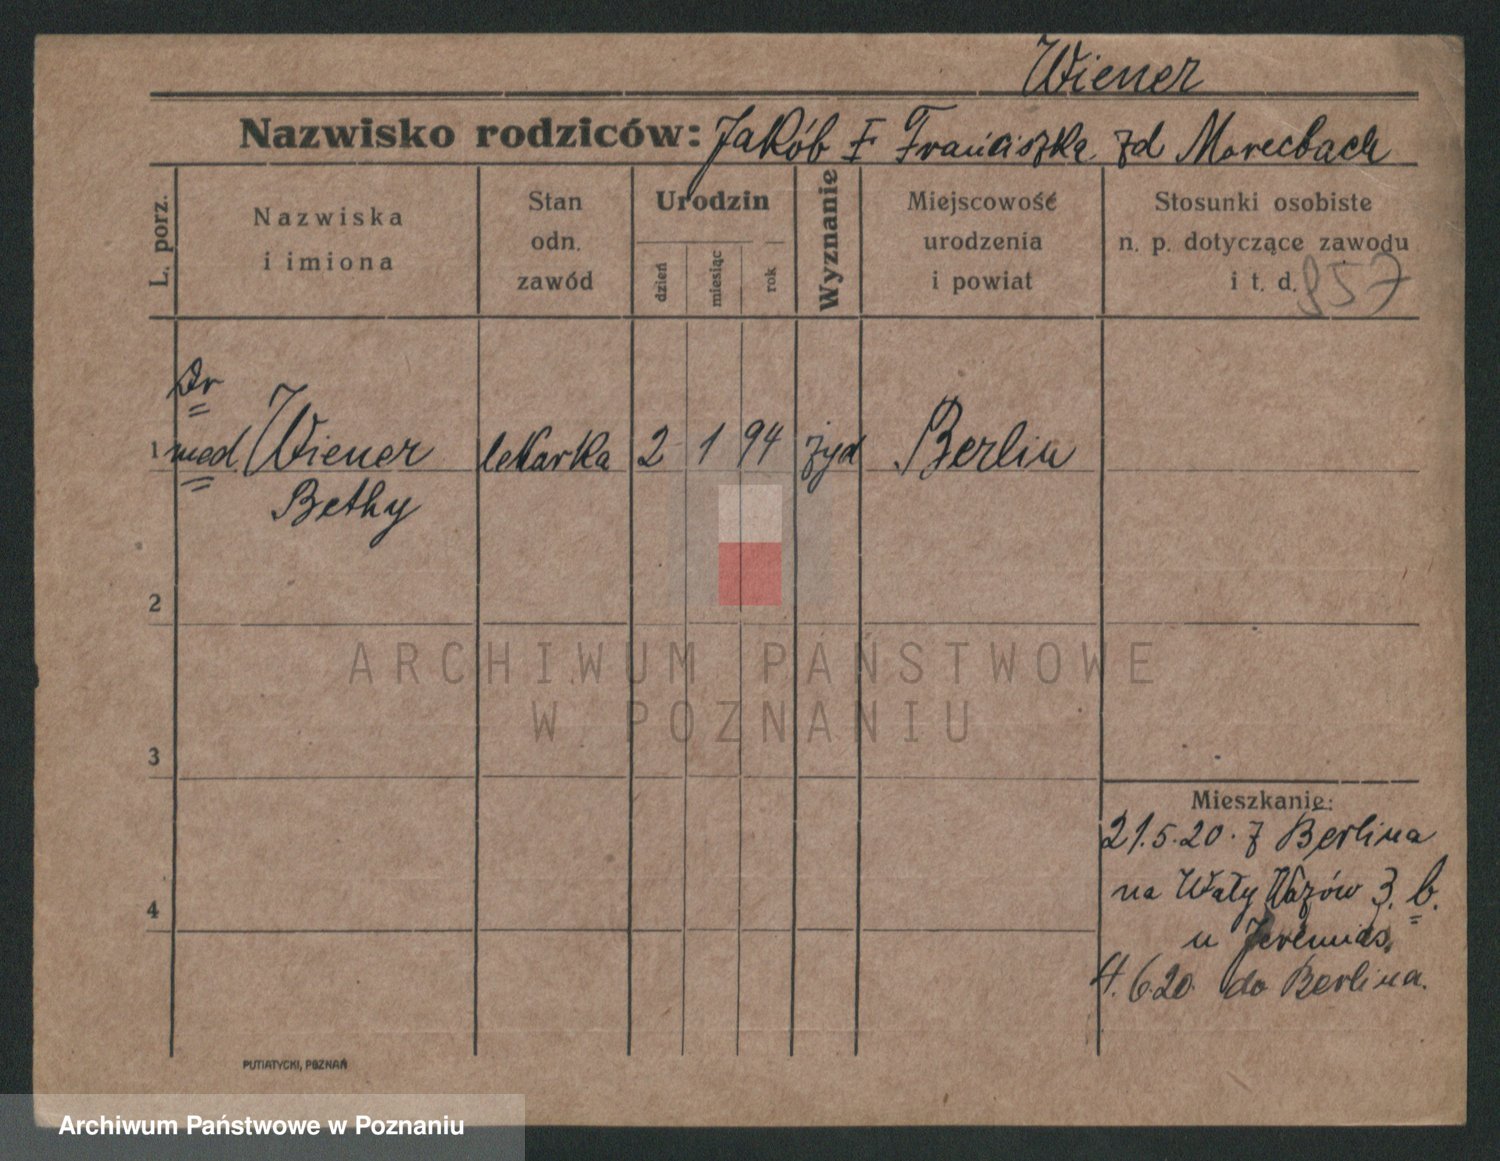 Wiener
Nazwisko rodziców: Jakób I Franciszka zd
L. porz.
Nazwiska
i imiona
Stan
odn.
zawód
Urodzin
dzień
miesiąc
rok
Wyznanie
Miejscowość
urodzenia
i powiat
Stosunki osobiste
n. p. dotyczące zawodu
i t. d. 957
Dr
1 med Wiener lekarka 2 1 94 żyd Berlin
Bethy
2
ARCHIWUM PAŃSTWOWE
W POZNANIU
3
Mieszkanie:
21.5.20. z Berlina
na Wały 3. b.
4
u Jeremias.
4.6.20 do Berlina.
PUTIATYCKI, POZNAŃ
Archiwum Państwowe w Poznaniu